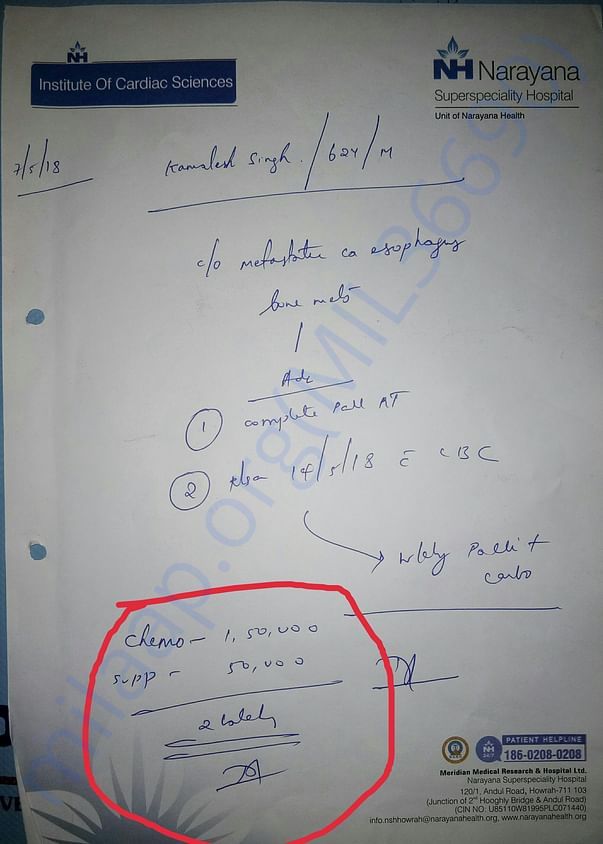 NH
Institute Of Cardiac Sciences
NH Narayana
Superspeciality Hospital
Unit of Narayana Health
7/5/18
Kamalesh Singh. / 62y / M
c/o metastatic ca esophagus
bone mets
Adv
1 complete Pall RT
2 14/5/18 c̄ CBC
wkly Pacli +
carbo
chemo - 1,50,000
supp - 50,000
2 lakh
milaap.org(MIL
PATIENT HELPLINE
NH 24/7 186-0208-0208
Meridian Medical Research & Hospital Ltd.
Narayana Superspeciality Hospital
120/1, Andul Road, Howrah-711 103
(Junction of 2nd Hooghly Bridge & Andul Road)
(CIN NO: U85110WB1995PLC071440)
info.nshhowrah@narayanahealth.org, www.narayanahealth.org